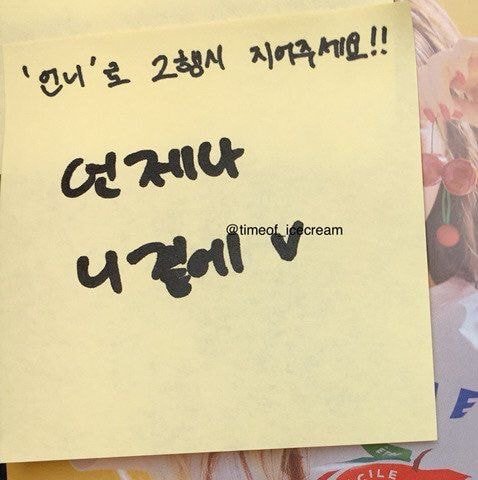 '언니'로 2행시 지어주세요!!
언제나
@timeof_icecream
니 곁에 ♥
CILE